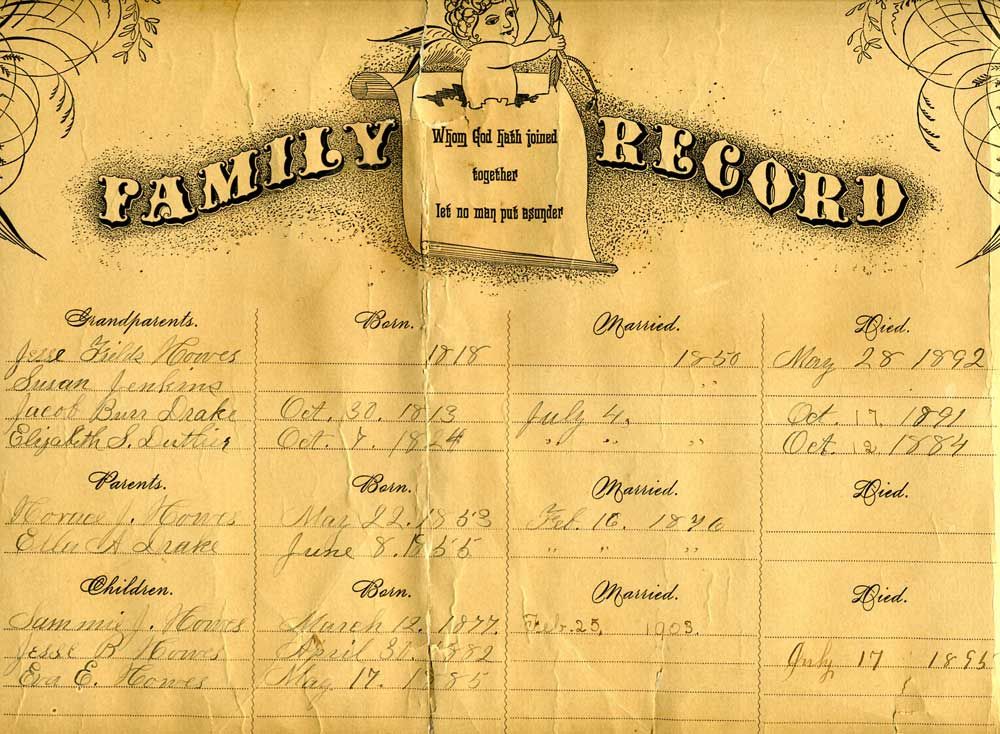 FAMILY RECORD
Whom God hath joined
together
let no man put asunder
Grandparents. Born. Married. Died.
Jesse Fields Howes 1818 1850 May 28 1892
Susan Jenkins " "
Jacob Burr Drake Oct. 30. 1813 July 4, Oct. 17, 1891
Elizabeth S. Oct. 7. 1824 " " " Oct. 12, 1884
Parents. Born. Married. Died.
Horace J. Howes May 22. 1853 Feb. 16. 1876
Ella A Drake June 8. 1855 " " "
Children. Born. Married. Died.
Sammie J. Howes March 12. 1877. Feb. 25, 1903.
Jesse B Howes April 30. 1882 July 17 1895
Eva E. Howes May 17. 1885